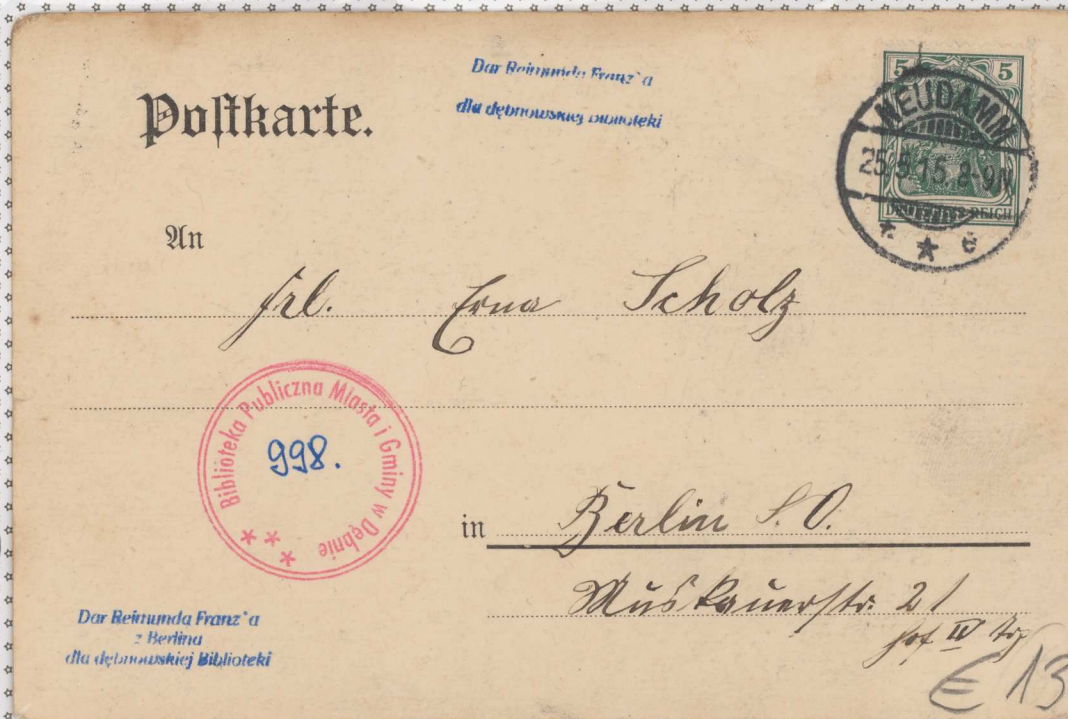 Postkarte.
Dar Reimunda Franz`a
dla dębnowskiej Biblioteki
5 5
NEUDAMM
25.5.15.8-9N
DEUTSCHES REICH
* * c
An
Frl. Erna Scholz
Biblioteka Publiczna Miasta i Gminy w Dębnie
998.
in Berlin S.O.
Muskauerstr. 21
Hof IV
Dar Reimunda Franz`a
z Berlina
dla dębnowskiej Biblioteki
€ 13